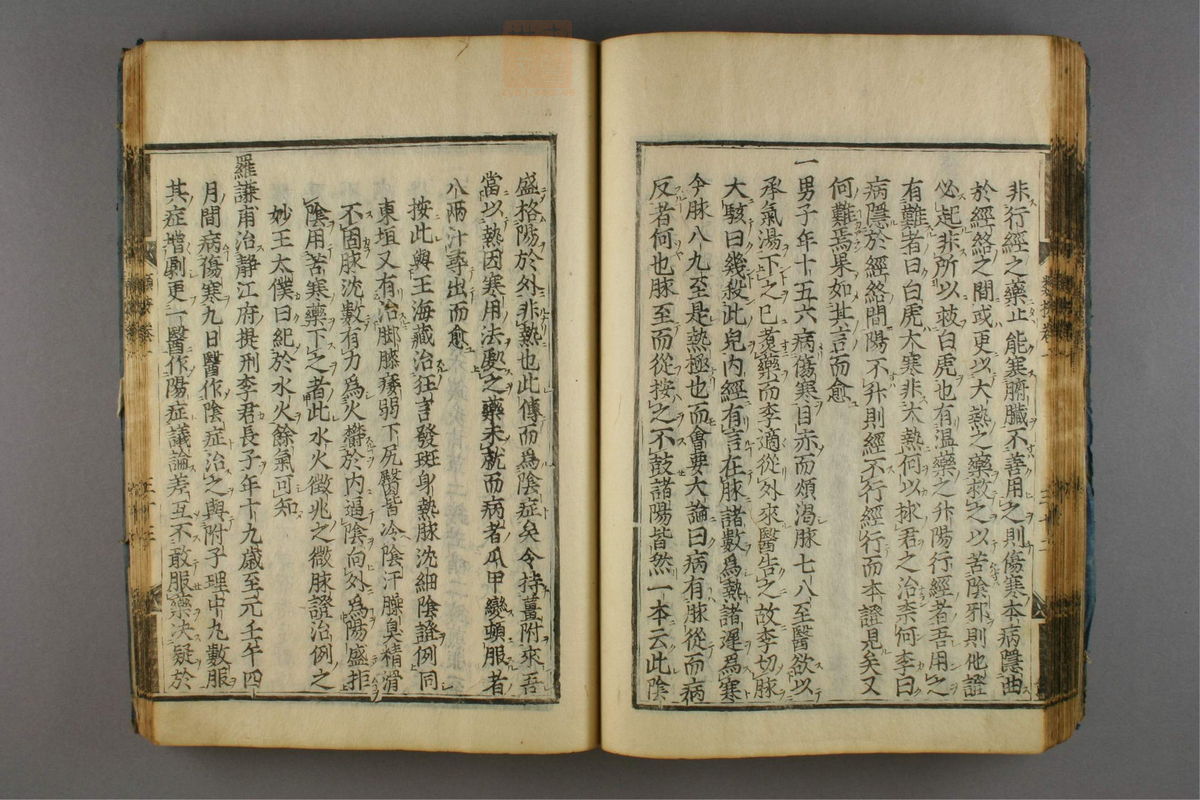 非行經之藥止能寒腑臟不善用之則傷寒本病隱曲
於經絡之間或更以大熱之藥救之以苦陰邪則他證
必起非所以救白虎也有温藥之升陽行經者吾用之
有難者曰白虎大寒非大熱何以救君之治奈何李曰
病隱於經絡間陽不升則經不行經行而本證見矣又
何難焉果如其言而愈
一男子年十五六病傷寒目赤而煩渴脉七八至醫欲以
承氣湯下之已煮藥而李適從外來醫告之故李切脉
大駭曰幾殺此兒内經有言在脉諸數爲熱諸遲爲寒
今脉八九至是熱極也而會要大論曰病有脉從而病
反者何也脉至而從按之不鼓諸陽皆然一本云此陰
盛格陽於外非熱也此傳而爲陰症矣令持薑附來吾
當以熱因寒用法處之藥未就而病者爪甲變頓服者
八兩汁尋出而愈
按此與王海藏治狂言發斑身熱脉沈細陰證例同
東垣又有治脚膝痿弱下尻臀皆冷陰汗臊臭精滑
不固脉沈數有力爲火欝於内逼陰向外爲陽盛拒
陰用苦寒藥下之者此水火徵兆之微脉證治例之
妙王太僕曰紀於水火餘氣可知
羅謙甫治靜江府提刑李君長子年十九歳至元壬午四
月間病傷寒九日醫作陰症治之與附子理中丸數服
其症增劇更一醫作陽症議論差互不敢服藥决疑於